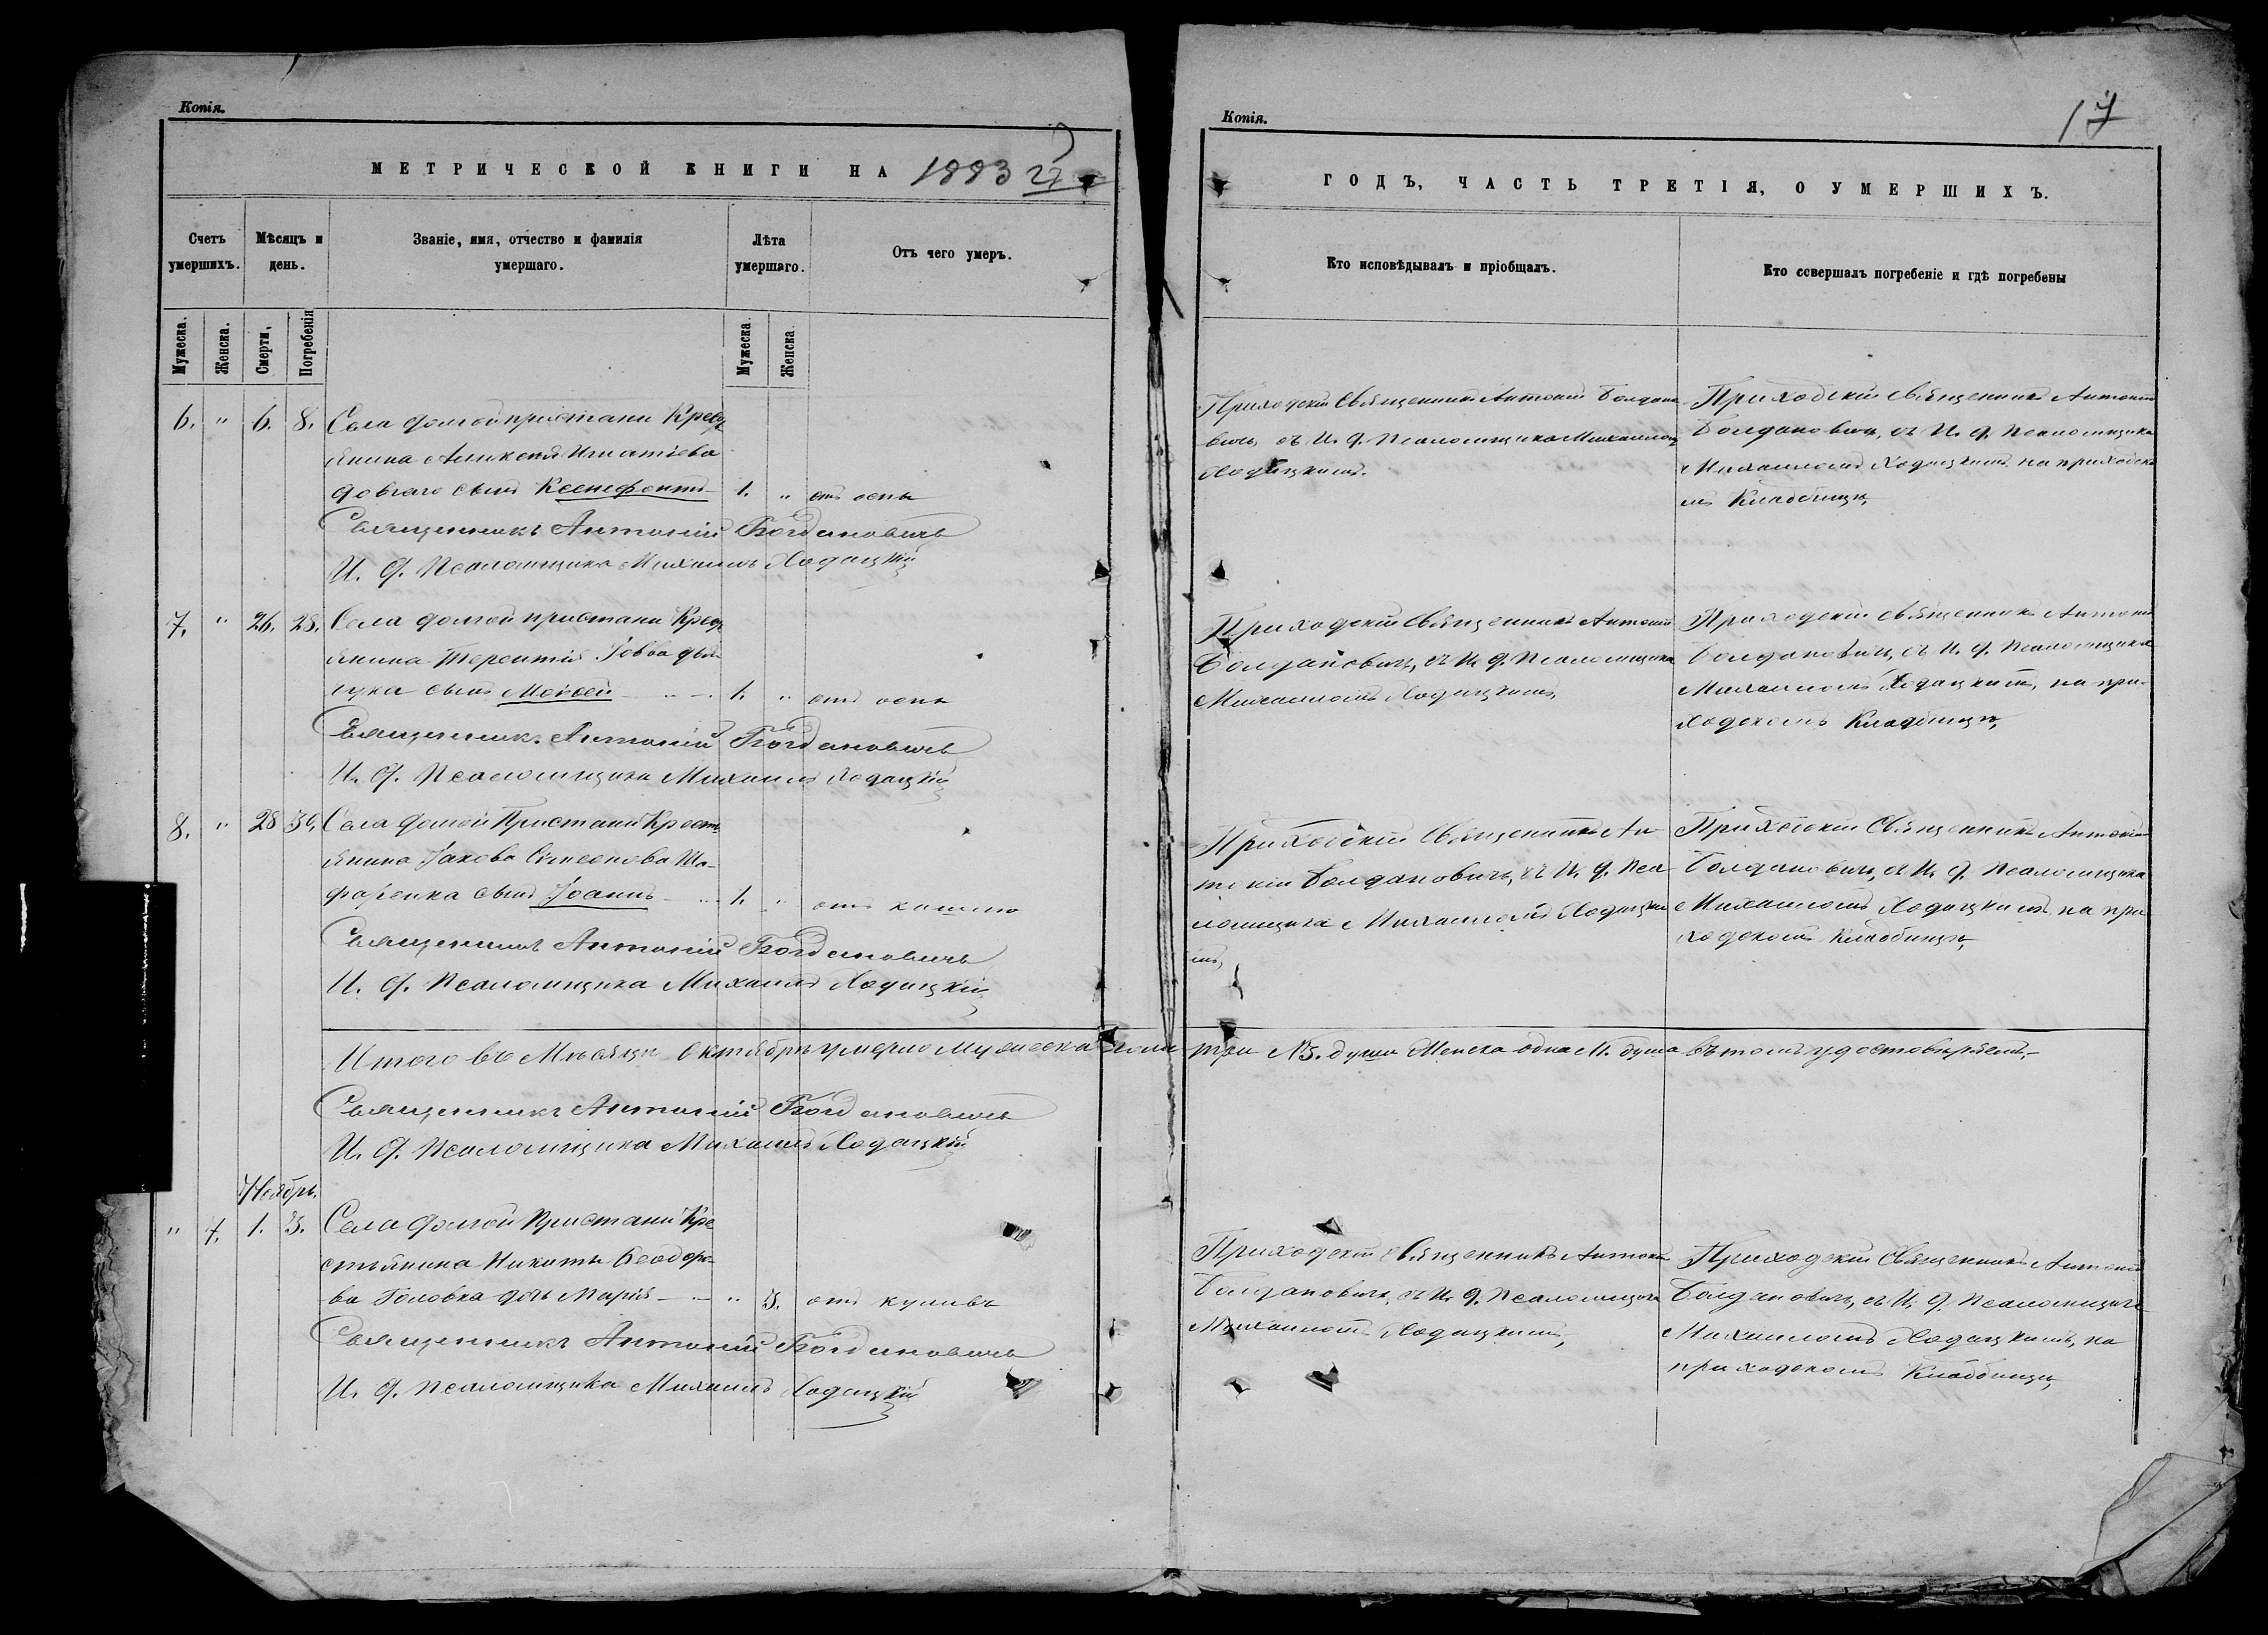 Копія.
МЕТРИЧЕСКОЙ КНИГИ НА 1883
27
Счетъ умершихъ.
Мѣсяцъ и день.
Званіе, имя, отчество и фамилія умершаго.
Лѣта умершаго.
Отъ чего умеръ.
Мужеска.
Женска.
Смерти,
Погребенія
Мужеска.
Женска.
6. " 6. 8. Села Долгой пристани Кресть
янина Алексѣя Игнатіева
Довгаго сынъ Ксенофонтъ 1. " отъ оспы
Священникъ Антоній Богдановичъ
И. д. Псаломщика Михаилъ Ходацкій
7. " 26. 28. Села Долгой пристани Кресть
янина Терентія Іовва
сынъ Моѵсей 1. " отъ оспы
Священникъ Антоній Богдановичъ
И. д. Псаломщика Михаилъ Ходацкій
8. " 28 30. Села Долгой Пристани Кресть
янина Іакова Симеонова Ша-
фаренка сынъ Іоаннъ 1. " отъ кашлю
Священникъ Антоній Богдановичъ
И. д. Псаломщика Михаилъ Ходацкій
Итого въ Мѣсяцѣ Октябрѣ умерло мужеска пола
Священникъ Антоній Богдановичъ
И. д. Псаломщика Михаилъ Ходацкій
Ноябрь.
" 7. 1. 3. Села Долгой Пристани Кре
стьянина Никиты Ѳеодоро-
ва Головка дочь Марія " 3. отъ
Священникъ Антоній Богдановичъ
И. д. Псаломщика Михаилъ Ходацкій
Копія.
17
ГОДЪ, ЧАСТЬ ТРЕТІЯ, О УМЕРШИХЪ.
Кто исповѣдывалъ и пріобщалъ.
Кто совершалъ погребеніе и гдѣ погребены
Приходскій Священникъ Антоній Богдано
вичъ, съ И. д. Псаломщика Михаиломъ
Ходацкимъ.
Приходскій священникъ Антоній
Богдановичъ, съ И. д. Псаломщика
Михаиломъ Ходацкимъ на приходско
мъ Кладбищѣ,
Приходскій Священникъ Антоній
Богдановичъ, съ И. д. Псаломщика
Михаиломъ Ходацкимъ,
Приходскій священникъ Антоній
Богдановичъ, съ И. д. Псаломщика
Михаиломъ Ходацкимъ, на при-
ходскомъ Кладбищѣ,
Приходскій Священникъ Ан
тоній Богдановичъ, съ И. д. Пса
ломщика Михаиломъ Ходацки
мъ,
Приходскій Священникъ Антоній
Богдановичъ, съ И. д. Псаломщика
Михаиломъ Ходацкимъ на при
ходскомъ Кладбищѣ,
три №3. души Женска одна №1. душа въ томъ удостовѣряемъ,-
Приходскій священникъ Антоній
Богдановичъ, съ И. д. Псаломщика
Михаиломъ Ходацкимъ,
Приходскій Священникъ Антоній
Богдановичъ, съ И. д. Псаломщика
Михаиломъ Ходацкимъ, на
приходскомъ Кладбищѣ,